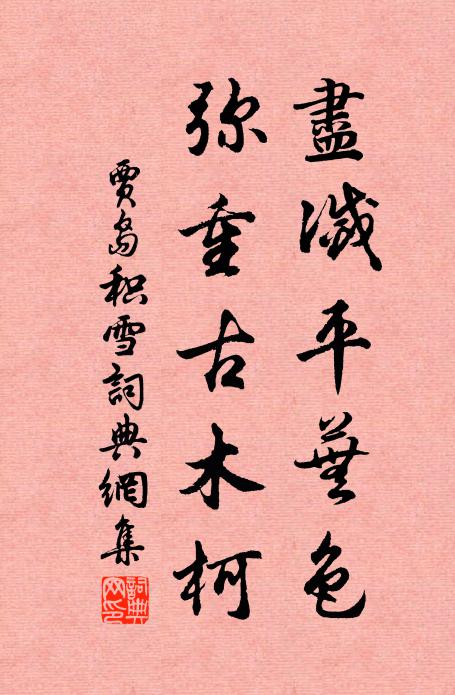 盡滅平蕪色
弥重古木柯
賈島积雪詞典網集
詞典网印